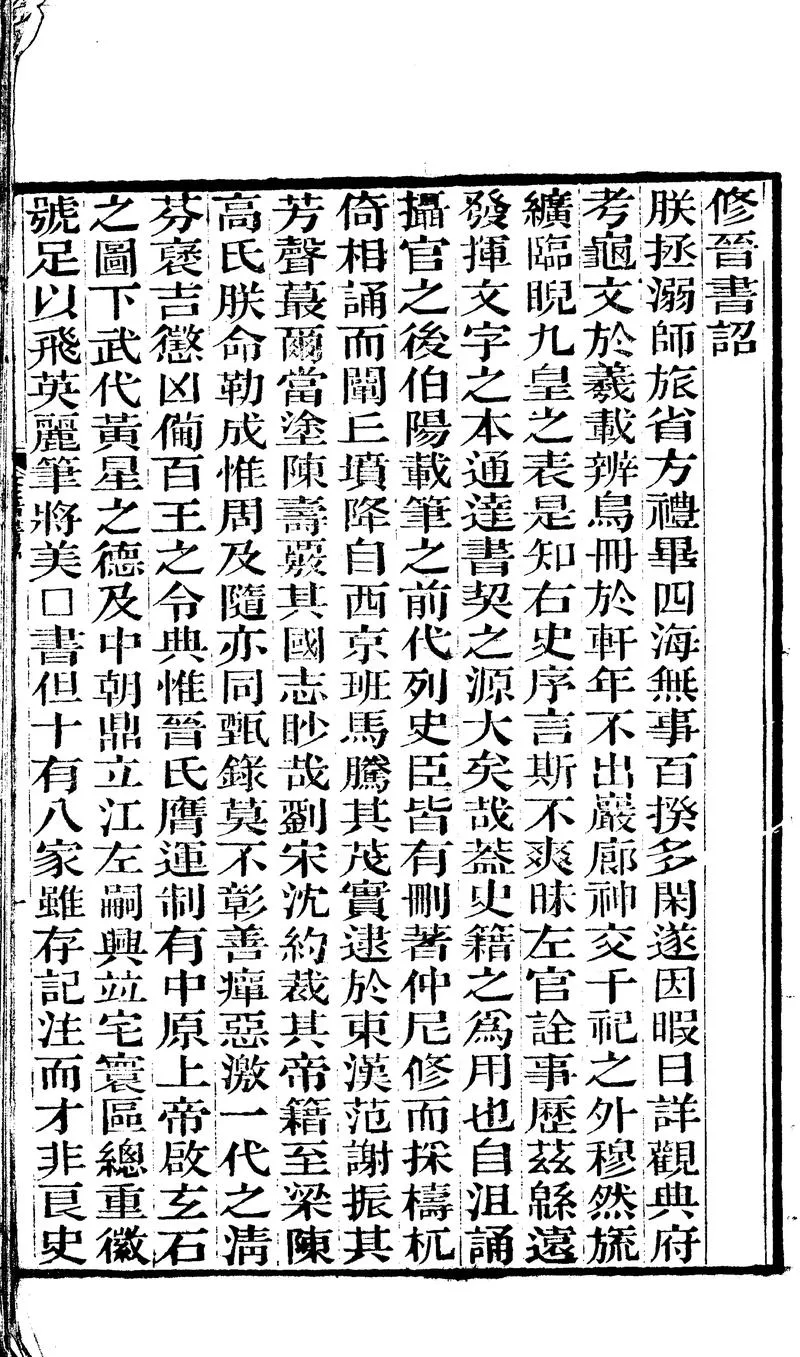 修晉書詔
朕拯溺師旅省方禮畢四海無事百揆多閑遂因暇日詳觀典府
考龜文於羲載辨鳥冊於軒年不出巖廊神交千祀之外穆然旒
纊臨睨九皇之表是知右史序言斯不爽昧左官詮事歷茲緜遠
發揮文字之本通達書契之源大矣哉葢史籍之爲用也自沮誦
攝官之後伯陽載筆之前代列史臣皆有刪著仲尼修而採檮杌
倚相誦而闡丘墳降自西京班馬騰其茂實逮於東漢范謝振其
芳聲蕞爾當塗陳壽覈其國志眇哉劉宋沈約裁其帝籍至梁陳
高氏朕命勒成惟周及隨亦同甄錄莫不彰善癉惡激一代之淸
芬褒吉懲凶僃百王之令典惟晉氏膺運制有中原上帝啟玄石
之圖下武代黃星之德及中朝鼎立江左嗣興竝宅寰區總重徽
號足以飛英麗筆將美□書但十有八家雖存記注而才非良史